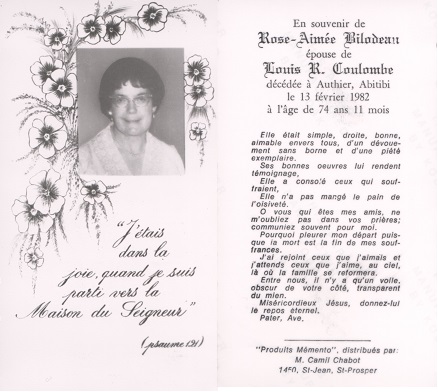 "J'étais
dans la
joie, quand je suis
parti vers la
Maison du Seigneur"
(psaume 121)
En souvenir de
Rose-Aimée Bilodeau
épouse de
Louis R. Coulombe
décédée à Authier, Abitibi
le 13 février 1982
à l'âge de 74 ans 11 mois
Elle était simple, droite, bonne,
aimable envers tous, d'un dévoue-
ment sans borne et d'une piété
exemplaire.
Ses bonnes oeuvres lui rendent
témoignage,
Elle a consolé ceux qui souf-
fraient,
Elle n'a pas mangé le pain de
l'oisiveté.
O vous qui êtes mes amis, ne
m'oubliez pas dans vos prières;
communiez souvent pour moi.
Pourquoi pleurer mon départ puis-
que la mort est la fin de mes souf-
frances.
J'ai rejoint ceux que j'aimais et
j'attends ceux que j'aime, au ciel,
là où la famille se reformera.
Entre nous, il n'y a qu'un voile,
obscur de votre côté, transparent
du mien.
Miséricordieux Jésus, donnez-lui
le repos éternel.
Pater, Ave.
"Produits Mémento", distribués par:
M. Camil Chabot
1450, St-Jean, St-Prosper